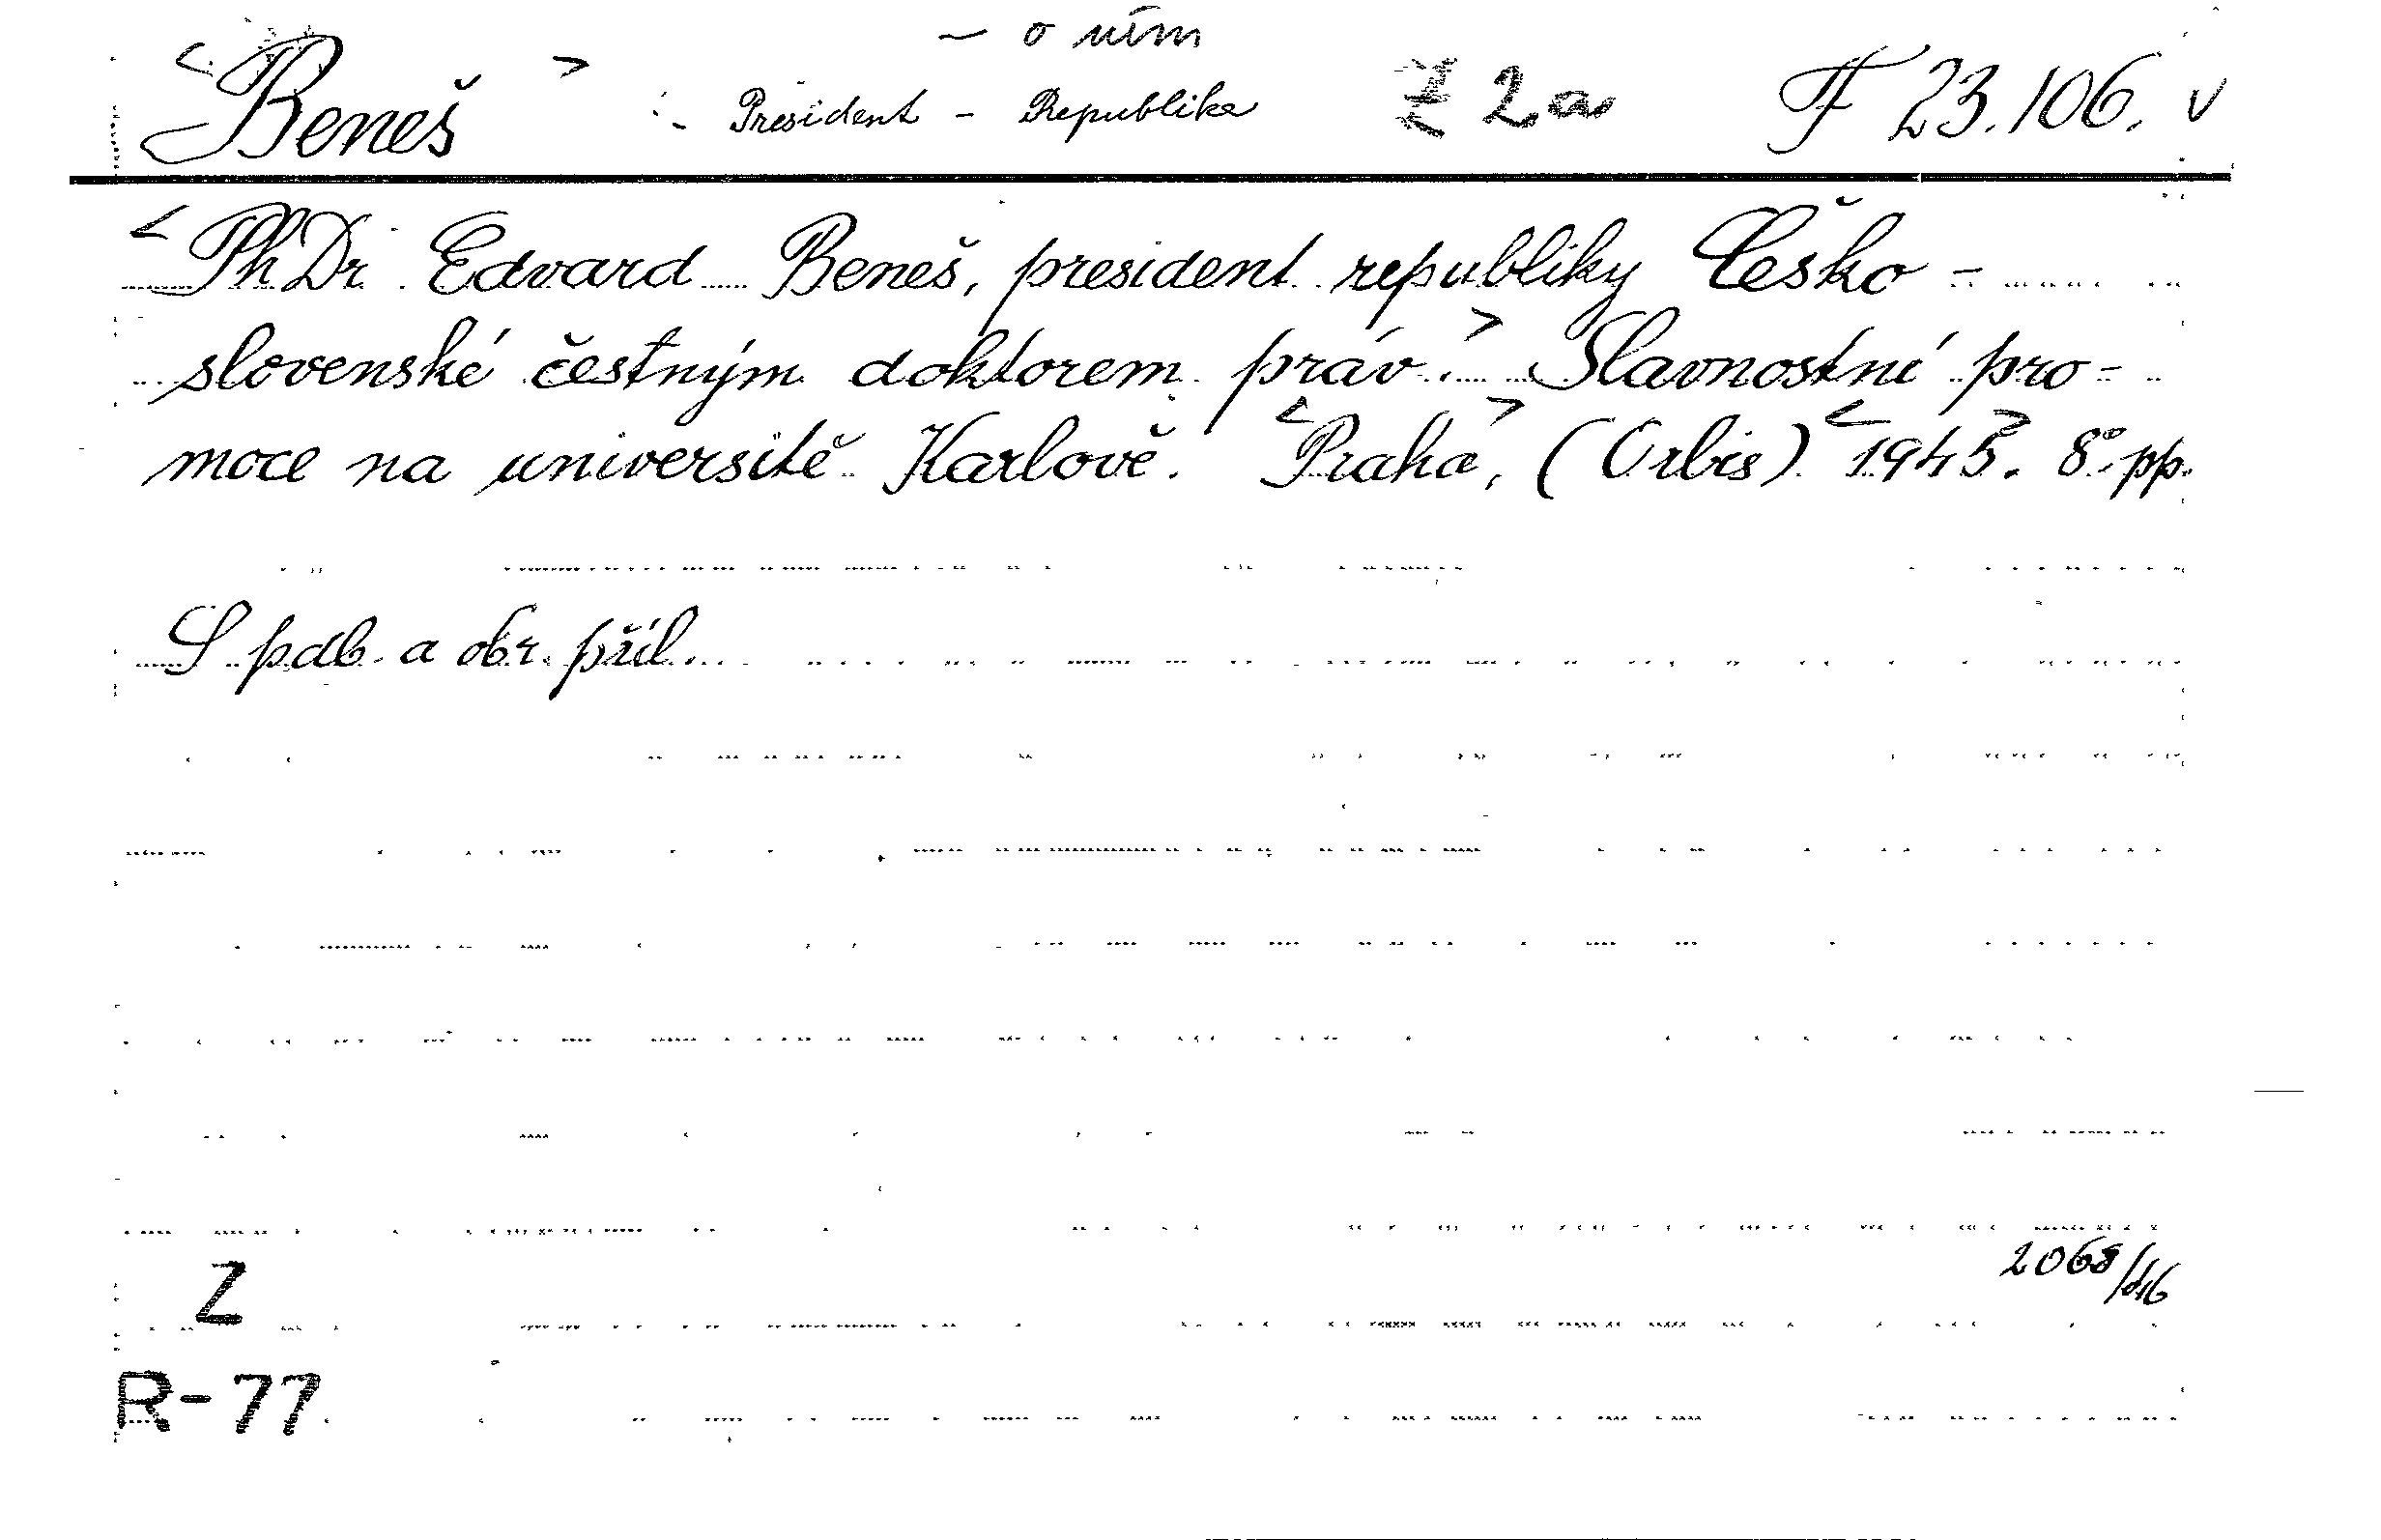 – o něm
< Beneš > :- President – Republika Ž 2a F 23.106. v
< PhDr Edvard Beneš, president republiky Česko-
slovenské čestným doktorem práv. > Slavnostní pro-
moce na universitě Karlově. < Praha >, (Orbis) < 1945 >. 8°. pp.
S pdb. a obr. příl.
Z
R-77